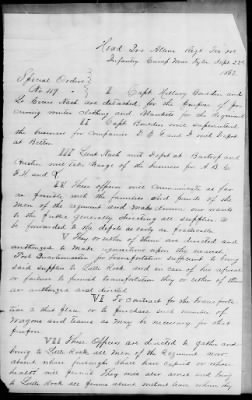 Head Qrs Allens Regt Tex Vol
Infantry Camp near Tyler Sept 23rd
1862
Special Orders
No 117 I Capt Mallory Burdin and
Lt Evans Nash are detached for the purpose of pro
curing winter clothing and blankets for the Regiment
II Capt Burdin will superintend
the business for companies D C G and I and depot
at
III Lieut Nash will depot at Bastrop and
and take charge of the business for A B E
F H and K
IV These officers will communicate as far
as possible with the families and friends of the
men of the regiment and make known our wants
to the public generally directing all supplies to
be forwarded to the depots as early as practicable
V They or either of them are directed and
authorized to make requisition upon the nearest
Post Quartermaster for transportation sufficient to bring
said supplies to Little Rock and in case of his refusal
or failure to furnish transportation they or either of them
are authorized and directed
VI To contract for the transporta
tion to that place or to purchase such number of
Wagons and teams as may be necessary for that
purpose
VII These Officers are directed to gather and
bring to Little Rock all men of the Regiment now
absent whose furloughs shall have expired or whose
health will permit They will also arrest and bring
to Little Rock all persons absent without leave when they